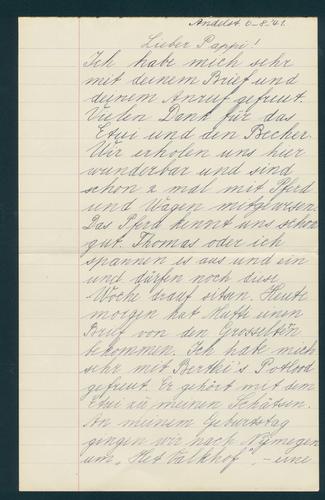 Andelst 6-8.'41.
Lieber Pappi!
Ich habe mich sehr
mit deinem Brief und
deinem Anruf gefreut.
Vielen Dank für das
Etui und den Becher.
Wir erholen uns hier
wunderbar und sind
schon 2 mal mit Pferd
und Wagen mitgewesen.
Das Pferd kennt uns schon
gut. Thomas oder ich
spannen es aus und ein
und dürfen noch diese
Woche drauf sitzen. Heute
morgen hat Mutti einen
Brief von den Grosseltern
bekommen. Ich habe mich
sehr mit Berthi's Potlood
gefreut. Er gehört mit dem
Etui zu meinen Schätsen.
An meinem Geburtstag
gingen wir nach Nijmegen
um „Het Valkhof", - eine